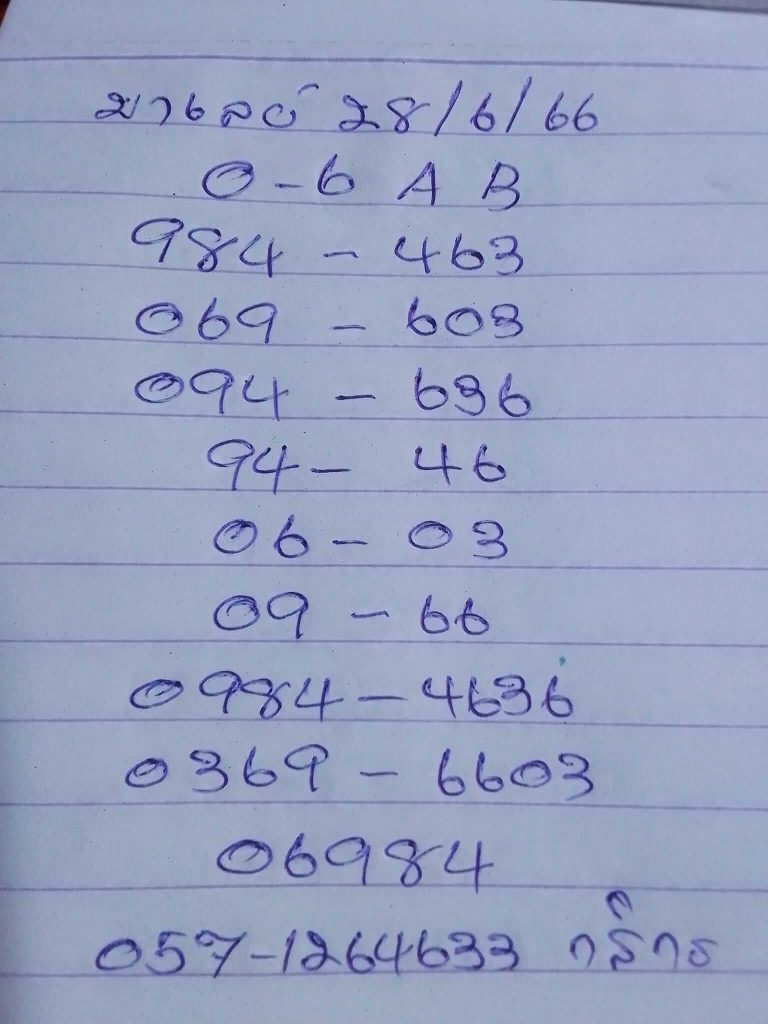 มาเลย์ 28/6/66
0-6 A B
984 - 463
069 - 603
094 - 636
94- 46
06 - 03
09 - 66
0984 - 4636
0369 - 6603
06984
057-1264633